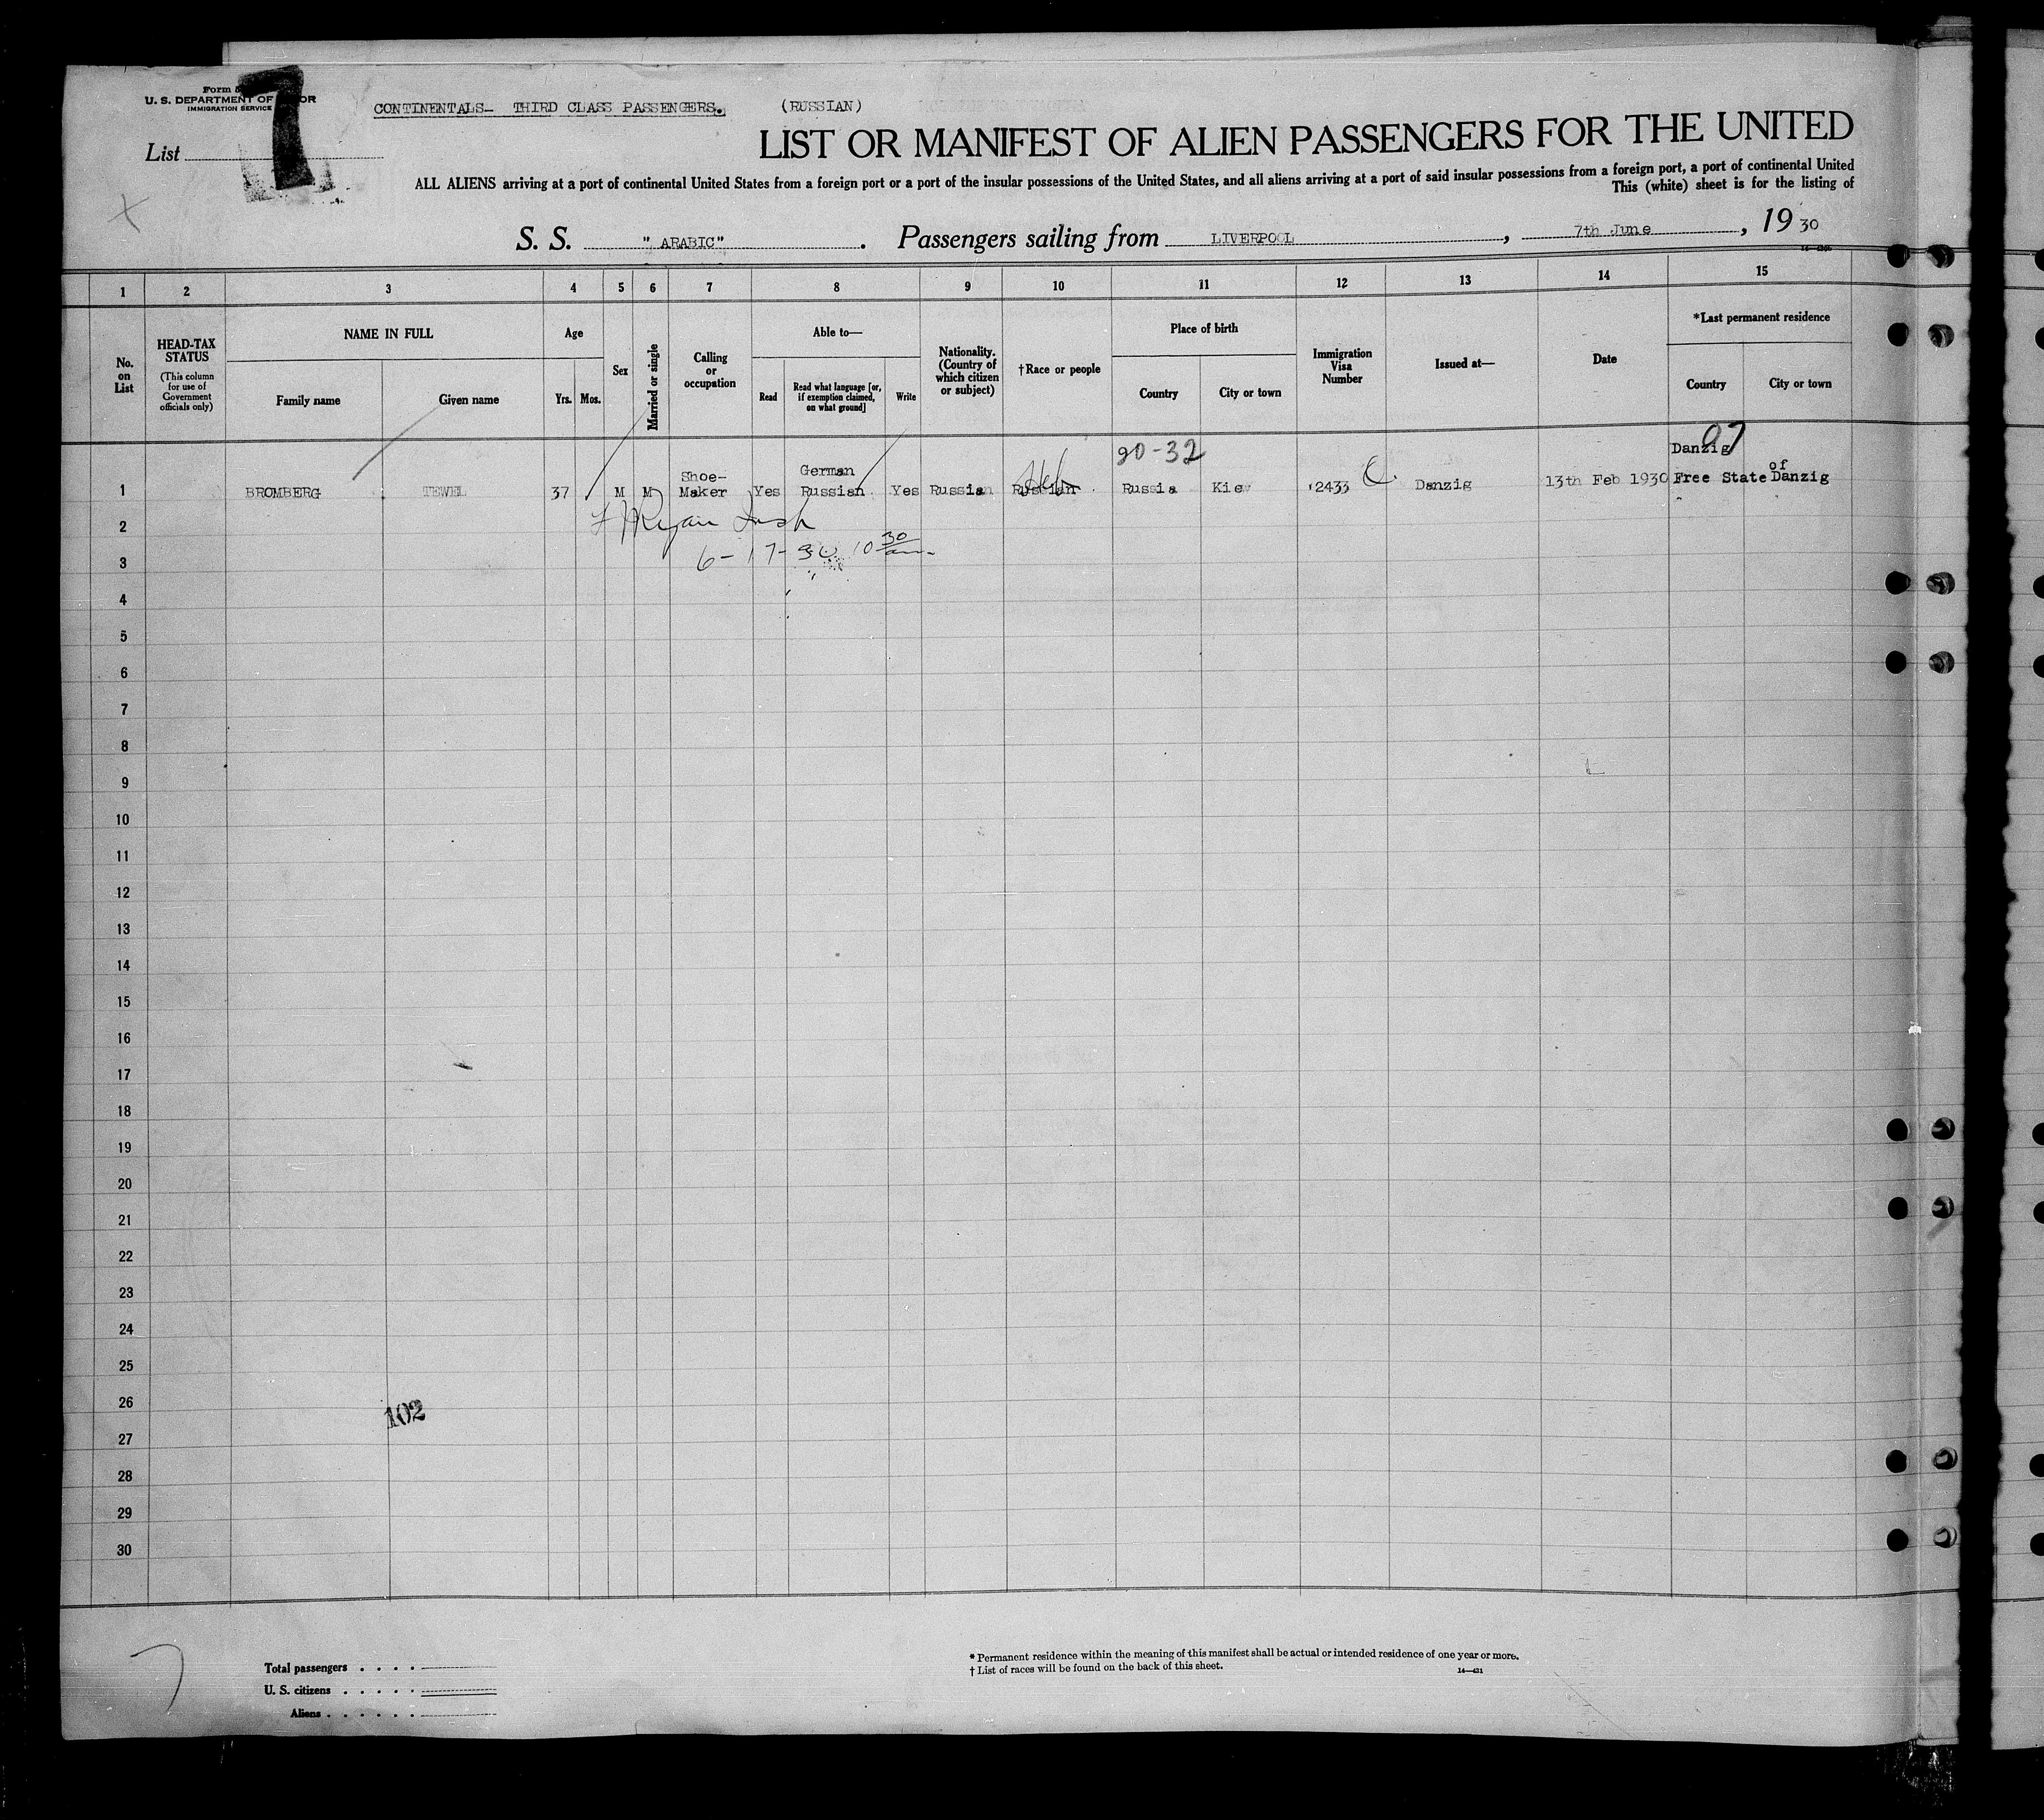 U. S. DEPARTMENT OF
IMMIGRATION SERVICE
7
CONTINENTALS- THIRD CLASS PASSENGERS. (RUSSIAN)
List
LIST OR MANIFEST OF ALIEN PASSENGERS FOR THE UNITED
ALL ALIENS arriving at a port of continental United States from a foreign port or a port of the insular possessions of the United States, and all aliens arriving at a port of said insular possessions from a foreign port, a port of continental United
This (white) sheet is for the listing of
S. S. "ARABIC". Passengers sailing from LIVERPOOL, 7th June, 19 30
1 2 3 4 5 6 7 8 9 10 11 12 13 14 15
No. on List
HEAD-TAX STATUS
(This column for use of Government officials only)
NAME IN FULL
Family name
Given name
Age
Yrs.
Mos.
Sex
Married or single
Calling or occupation
Able to—
Read
Read what language [or, if exemption claimed, on what ground]
Write
Nationality. (Country of which citizen or subject)
†Race or people
Place of birth
Country
City or town
Immigration Visa Number
Issued at—
Date
*Last permanent residence
Country
City or town
90-32
97
1 BROMBERG TEWEL 37 M M Shoe-Maker Yes German Russian Yes Russian Russian Heb Russia Kiew 2433 Danzig 13th Feb 1930 Danzig Free State of Danzig
2
6-17-30 10 30 am
3
4
5
6
7
8
9
10
11
12
13
14
15
16
17
18
19
20
21
22
23
24
25
26
102
27
28
29
30
7
Total passengers . . . .
U. S. citizens . . . . .
Aliens . . . . . .
* Permanent residence within the meaning of this manifest shall be actual or intended residence of one year or more.
† List of races will be found on the back of this sheet.
14—421